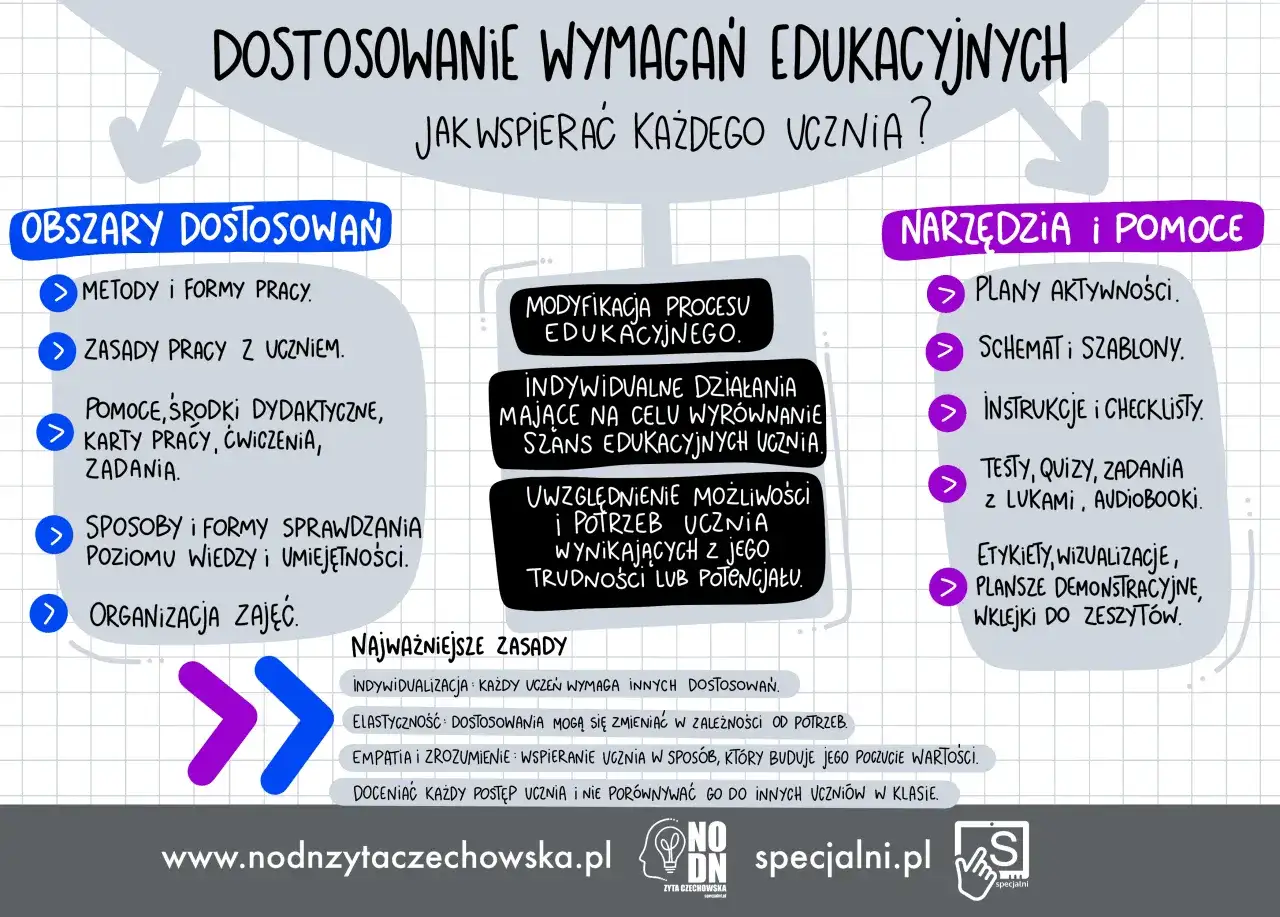 DOSTOSOWANIE WYMAGAŃ EDUKACYJNYCH
JAK WSPIERAĆ KAŻDEGO UCZNIA?
OBSZARY DOSTOSOWAŃ
METODY I FORMY PRACY.
ZASADY PRACY Z UCZNIEM.
POMOCE, ŚRODKI DYDAKTYCZNE,
KARTY PRACY, ĆWICZENIA,
ZADANIA.
SPOSOBY I FORMY SPRAWDZANIA
POZIOMU WIEDZY I UMIEJĘTNOŚCI.
ORGANIZACJA ZAJĘĆ.
MODYFIKACJA PROCESU
EDUKACYJNEGO.
INDYWIDUALNE DZIAŁANIA
MAJĄCE NA CELU WYRÓWNANIE
SZANS EDUKACYJNYCH UCZNIA.
UWZGLĘDNIENIE MOŻLIWOŚCI
I POTRZEB UCZNIA
WYNIKAJĄCYCH Z JEGO
TRUDNOŚCI LUB POTENCJAŁU.
NARZĘDZIA I POMOCE
PLANY AKTYWNOŚCI.
SCHEMAT I SZABLONY.
INSTRUKCJE I CHECKLISTY.
TESTY, QUIZY, ZADANIA
Z LUKAMI, AUDIOBOOKI.
ETYKIETY, WIZUALIZACJE,
PLANSZE DEMONSTRACYJNE,
WKLEJKI DO ZESZYTÓW.
NAJWAŻNIEJSZE ZASADY
INDYWIDUALIZACJA: KAŻDY UCZEŃ WYMAGA INNYCH DOSTOSOWAŃ.
ELASTYCZNOŚĆ: DOSTOSOWANIA MOGĄ SIĘ ZMIENIAĆ W ZALEŻNOŚCI OD POTRZEB.
EMPATIA I ZROZUMIENIE: WSPIERANIE UCZNIA W SPOSÓB, KTÓRY BUDUJE JEGO POCZUCIE WARTOŚCI.
DOCENIAĆ KAŻDY POSTĘP UCZNIA I NIE PORÓWNYWAĆ GO DO INNYCH UCZNIÓW W KLASIE.
www.nodnzytaczechowska.pl
NO
DN
ZYTA CZECHOWSKA
specjalni.pl
specjalni.pl
S
specjalni